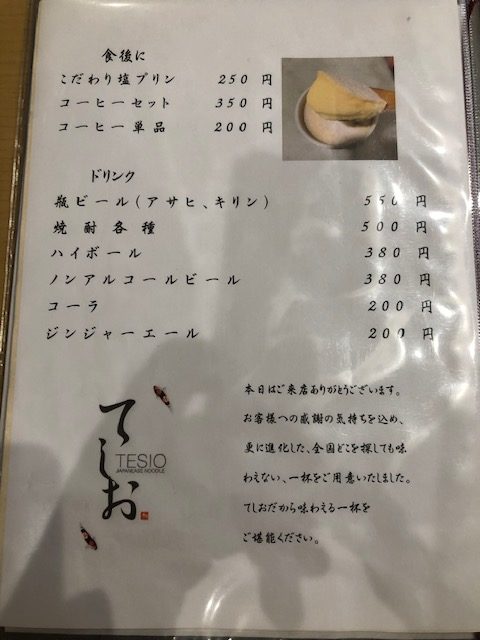 食後に
こだわり塩プリン 250 円
コーヒーセット 350 円
コーヒー単品 200 円
ドリンク
瓶ビール(アサヒ、キリン) 550 円
焼酎各種 500 円
ハイボール 380 円
ノンアルコールビール 380 円
コーラ 200 円
ジンジャーエール 200 円
本日はご来店ありがとうございます。
お客様への感謝の気持ちを込め、
更に進化した、全国どこを探しても味
わえない、一杯をご用意いたしました。
てしおだから味わえる一杯を
ご堪能ください。
てしお
TESIO
JAPANEASE NOODLE